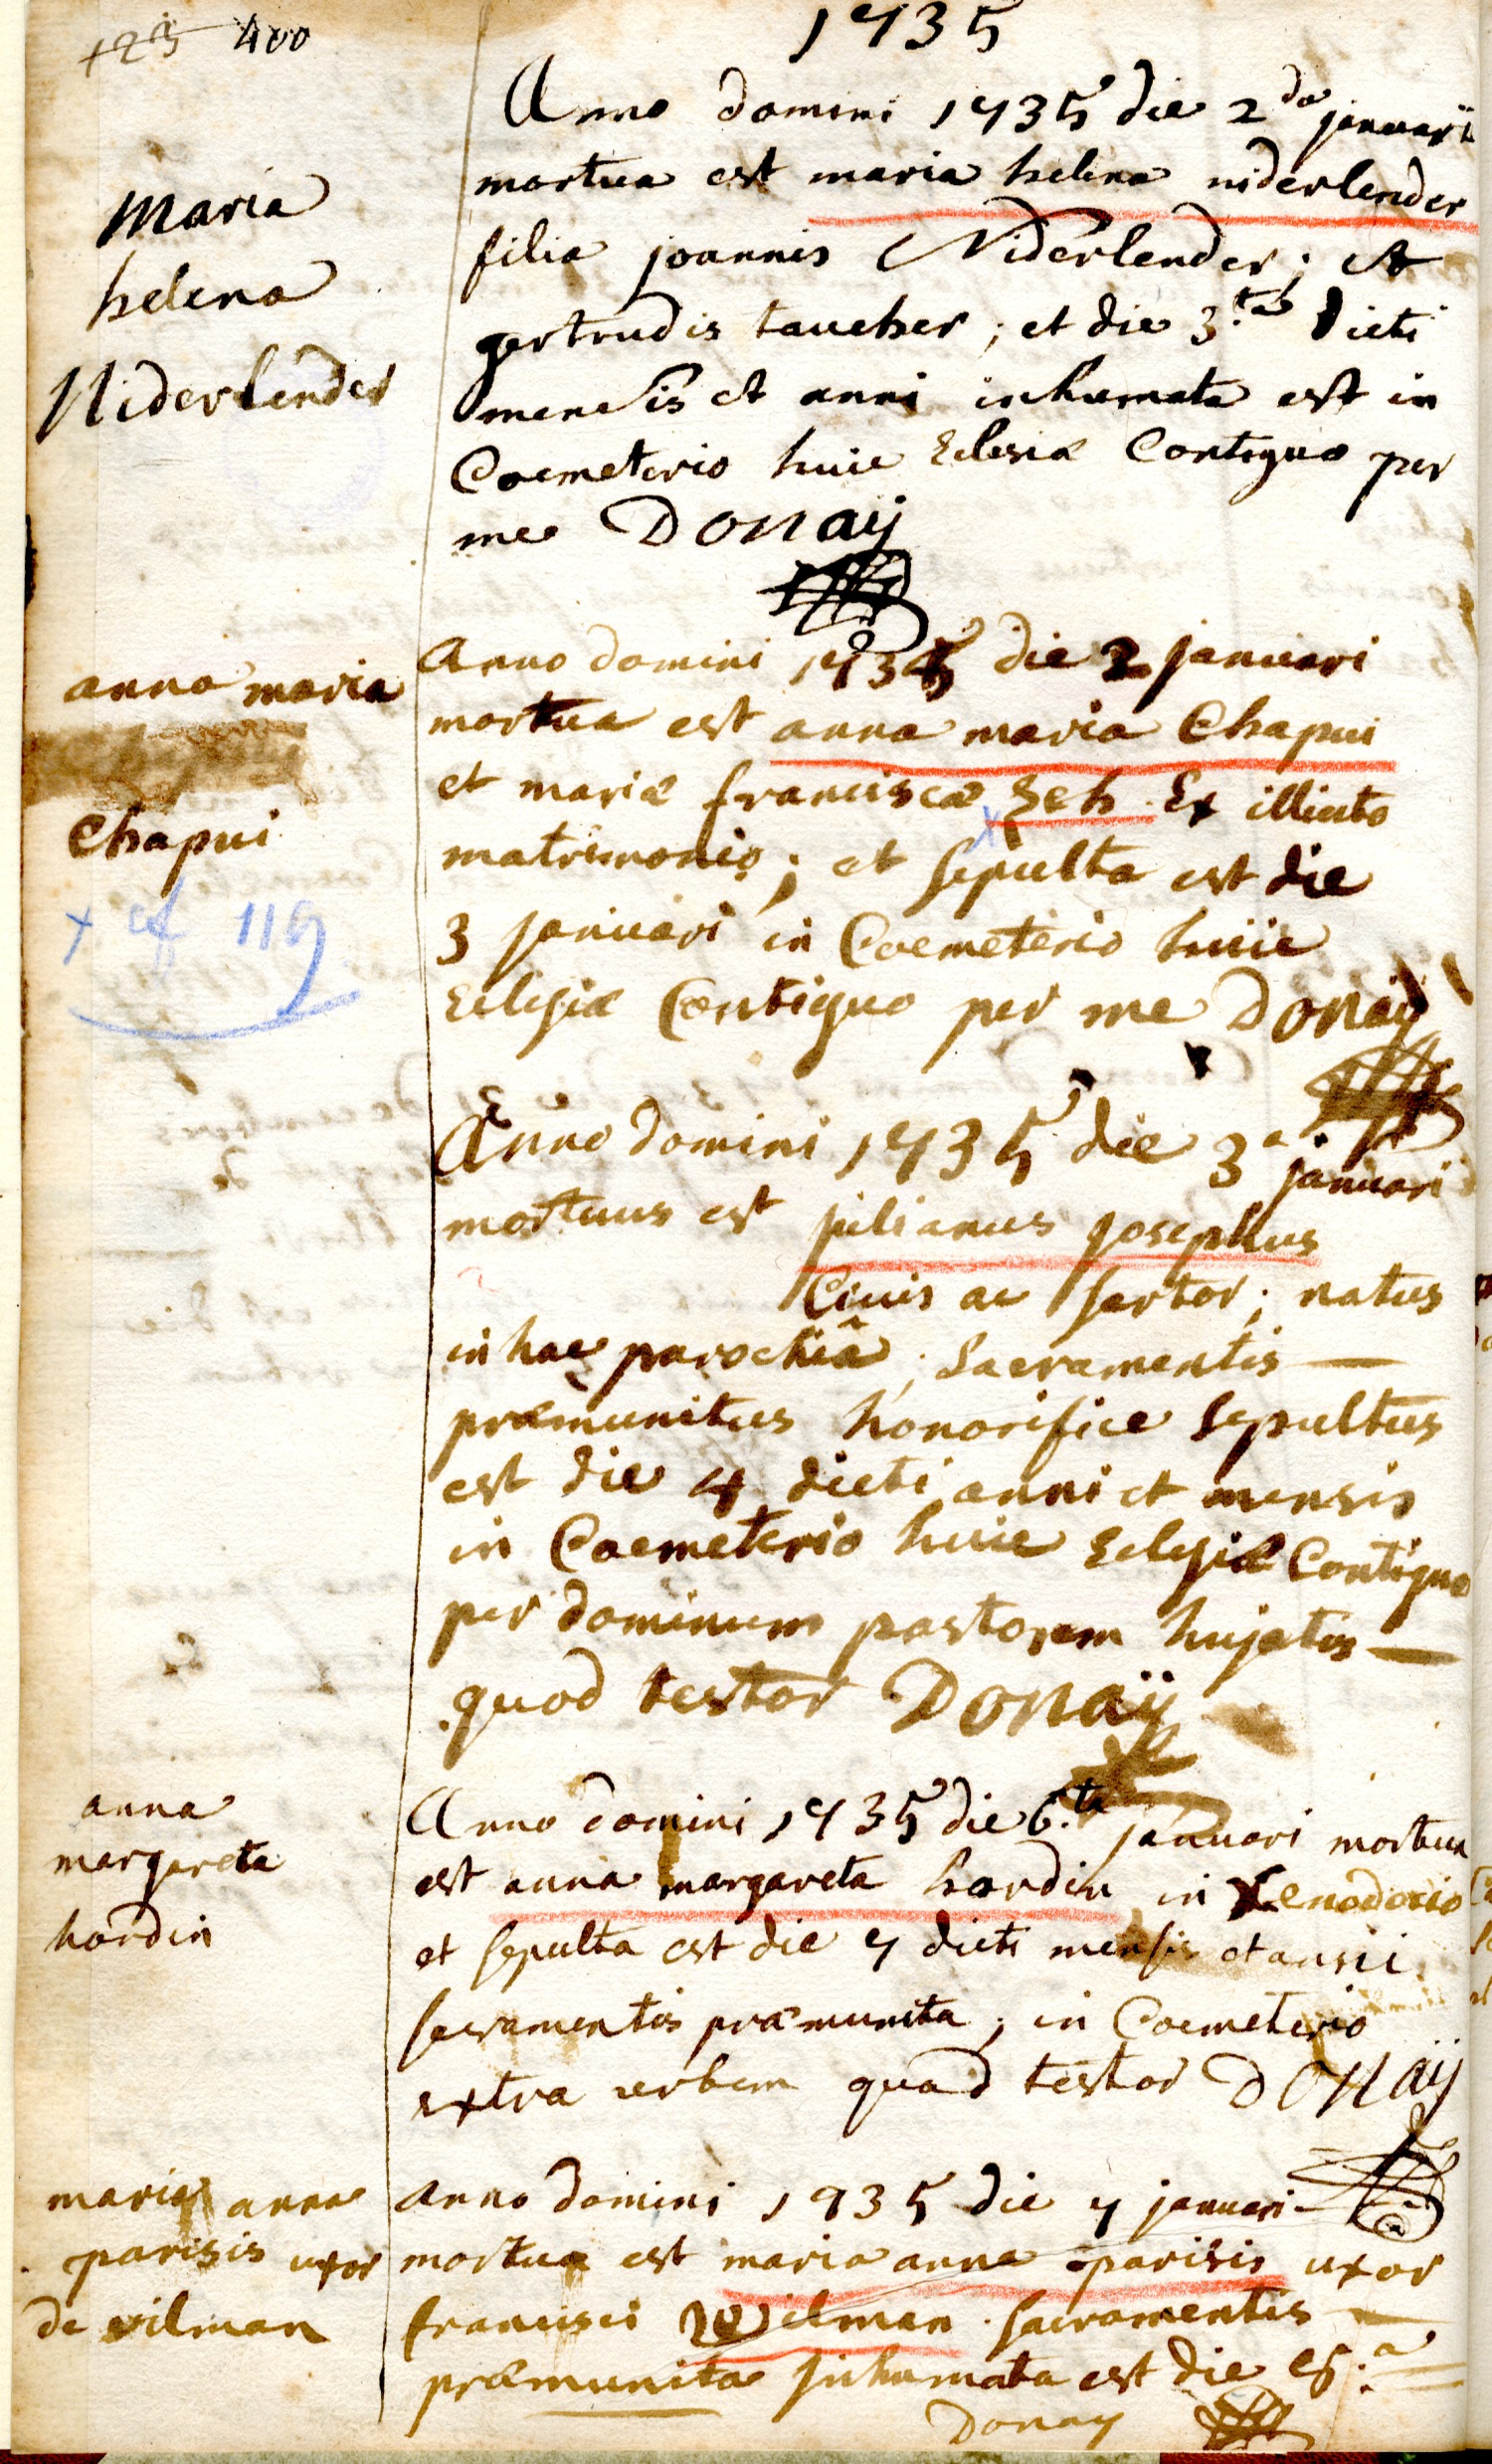 123 400
1735
Anno domini 1735 die 2da januarii
mortua est maria helena niderlender
filia joannis Niderlender; et
gertrudis taucher; et die 3.ta dicti
mensis et anni inhumata est in
Coemeterio huic Eclesiæ Contiguo per
me Donaÿ
Maria
helena
Niderlender
Anno domini 1735 die 2 januari
mortua est anna maria Chapui
et mariæ franciscæ Zeh. Ex illicito
matrimonio; et sepulta est die
3 januari in Coemeterio huic
Eclesiæ Contiguo per me Donaÿ
anna maria
Chapui
x cf 119
Anno domini 1735 die 3a januari
mortuus est julianus josephus
Civis ac sartor; natus
in hac parochiâ; Sacramentis
præmunitus honorifice Sepultus
est die 4 dicti anni et mensis
in Coemeterio huic Eclesiæ Contiguo
per dominum pastorem hujatis
quod testor Donaÿ
Anno domini 1735 die 6.ta januari mortua
est anna margareta hardin in Xenodocio
et sepulta est die 7 dicti mensis et anni
sacramentis præmunita; in Coemeterio
extra urbem quod testor Donaÿ
anna
margareta
hardin
anno domini 1735 die 7 januari
mortua est maria anna parisis uxor
francisci Wilman. sacramentis
præmunita inhumata est die
Donay
maria anna
parisis uxor
de vilman